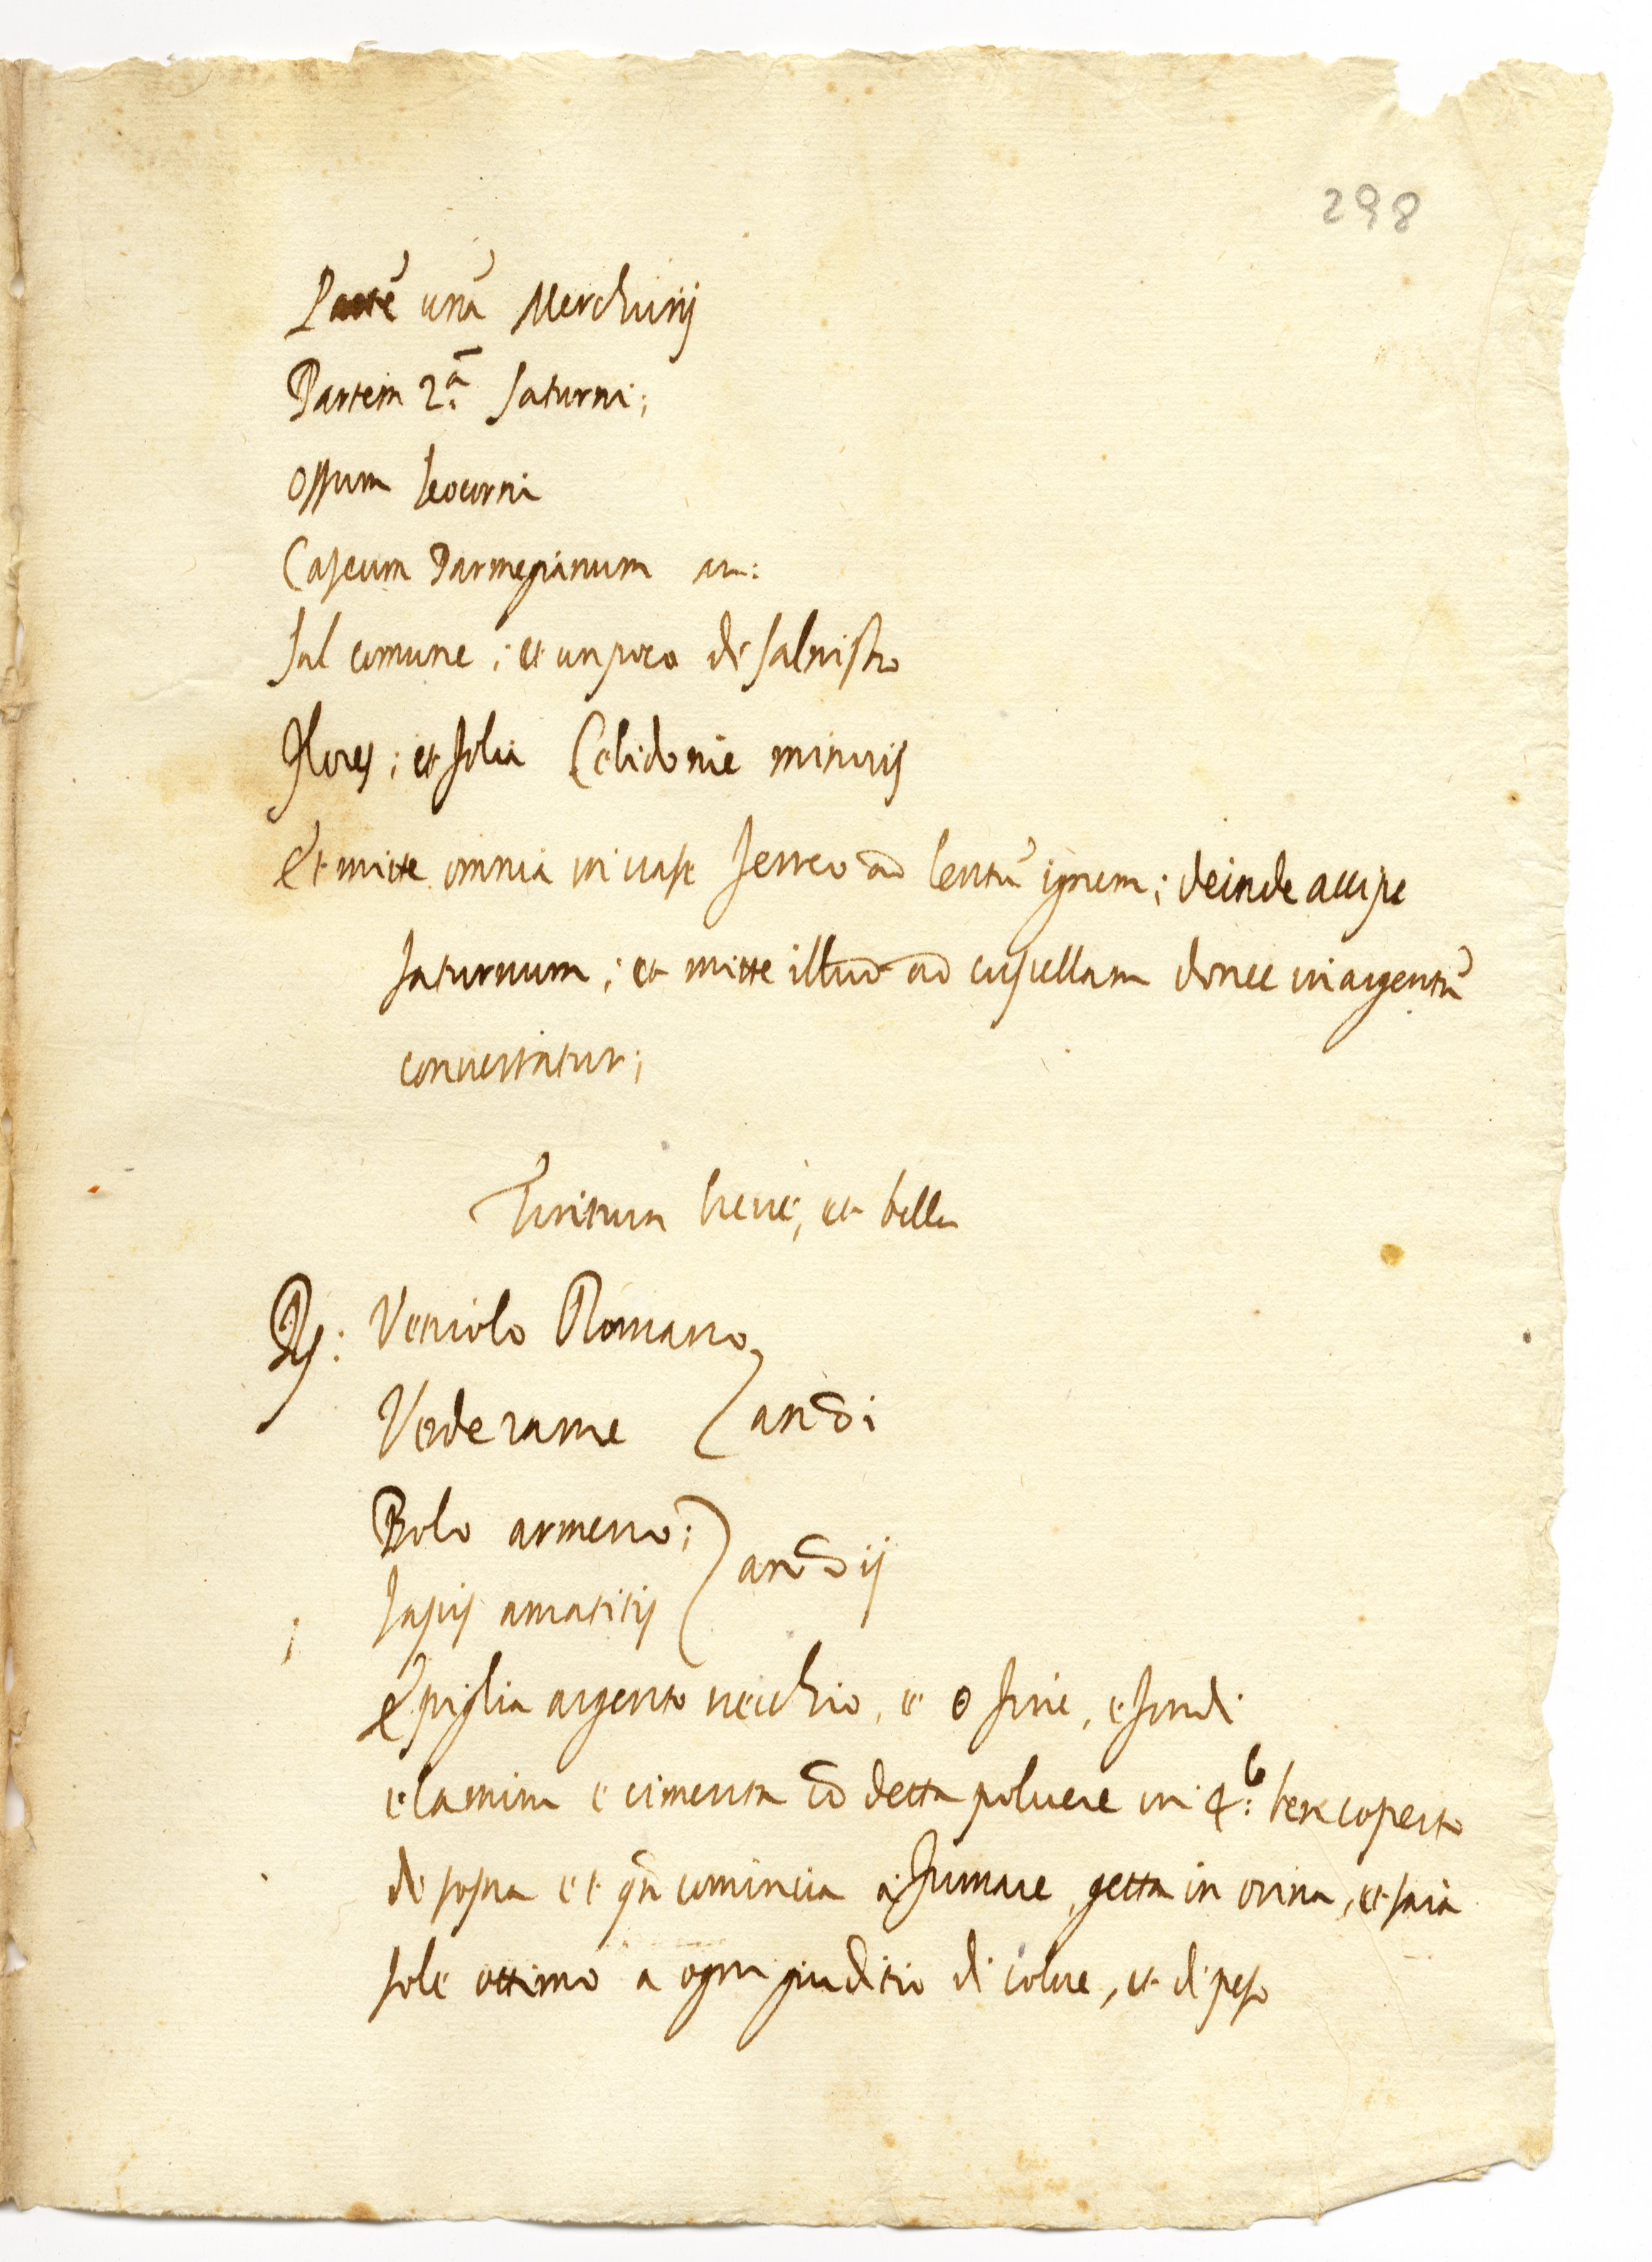 298
Partē unā Merchurij
Partem 2.ᵃ Saturni;
ossum
Caseum Parmegianum an:
Sal comune; et un poco di salnistro
Flores; et folia Celidonie minoris
Et mitte omnia in vase ferreo ad lentū ignem; deinde accipe
saturnum; et mitte illud ad cupellam donec in argentū
convertatur;
Tintura breve, et bella
Rx: Vetriolo Romano
Verde rame
an℥i
Bolo armeno;
lapis amatitis
an℥ij
E piglia argento vecchio, e ☉ fine, e fondi
e lamina e cimenta cō detta polvere in ben coperto
di sopra et qn̄ comincia a fumare, getta in orina, et sarà
sole ottimo a ogni giuditio di colore, et di peso